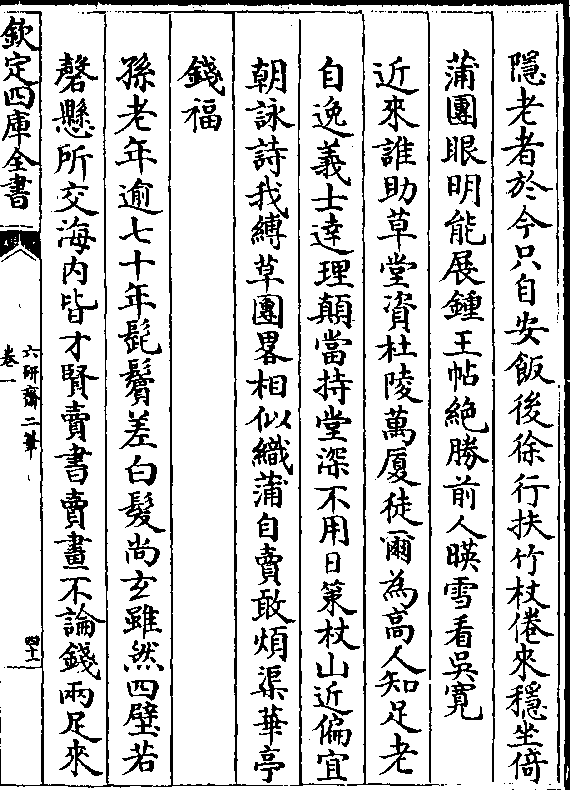 隱老者於今只自安飯後徐行扶竹杖倦來穩坐倚
蒲團眼明能展鍾王帖絶勝前人暎雪看吳寛
近來誰助草堂資杜陵萬厦徒爾為高人知足老
自逸義士達理顛當持堂深不用日策杖山近偏宜
朝詠詩我縛草團畧相似織蒲自賣敢煩渠華亭
錢福
孫老年逾七十年髭鬚差白髮尚玄雖然四壁若
磬懸所交海内皆才賢賣書賣畫不論錢兩足來
欽定四庫全書
六研齋二筆
卷一
四十二